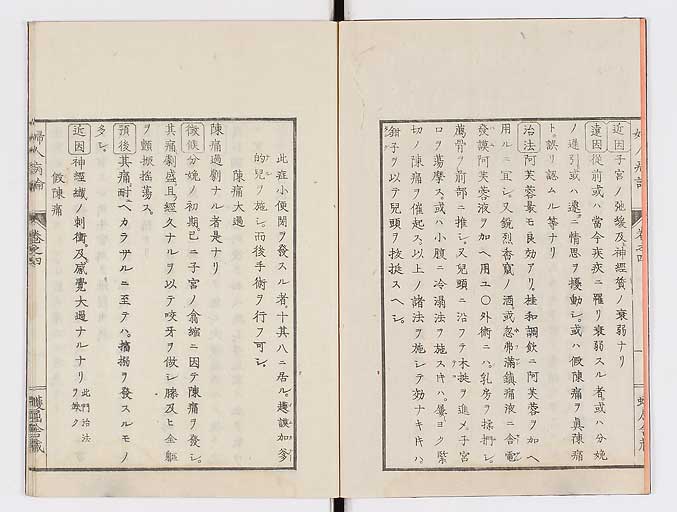 近因子宮ノ弛緩及神經質ノ衰弱ナリ
遠因從前或ハ當今疾疢ニ罹リ衰弱スル者或ハ分娩
ノ遷引或ハ遽ニ情思ヲ擾動シ或ハ假陳痛ヲ眞陳痛
ト誤リ認ムル等ナリ
治法阿芙蓉最モ良効アリ。桂和調飲ニ阿芙蓉ヲ加ヘ
用ルニ宜シ又鋭烈香竄ノ酒或忽弗滿鎮痛液ニ含電
發謨阿芙蓉液ヲ加ヘ用ユ〇外術ニハ乳房ヲ揉捫シ
薦骨ヲ前部ニ推シ又兒頭ニ沿フテ木挺ヲ進メ子宮
口ヲ蕩摩ス。或ハ小腹ニ冷溻法ヲ施スキハ屢ヨク緊
切ノ陳痛ヲ催起ス以上ノ諸法ヲ施シテ効ナキキハ
鉗子ヲ以テ兒頭ヲ抜挺スヘシ。
此症小便閉ヲ發スル者十其八ニ居ル。
的兒ヲ施シ而後手術ヲ行フ可シ
陳痛大過
陳痛過劇ナル者是ナリ
徴候分娩ノ初期已ニ子宮ノ翕縮ニ因テ陳痛ヲ發シ。
其痛劇盛且經久ナルヲ以テ咬牙ヲ做シ膝及ヒ全軀
ヲ顫振搖蕩ス。
預後其痛耐ヘカラサルニ至テハ搐搦ヲ發スルモノ
多シ
近因ノ神經纖ノ刺衝及感覺大過ナルナリ 此門治法ヲ缺ク
假陳痛
婦人病論
卷之四